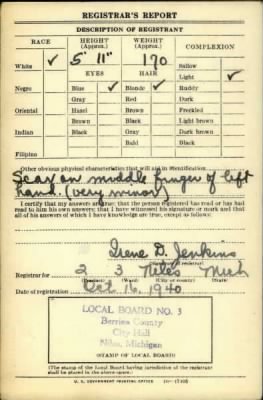 REGISTRAR'S REPORT
DESCRIPTION OF REGISTRANT
RACE HEIGHT (Approx.) WEIGHT (Approx.) COMPLEXION
White ✓ 5' 11" 170 Sallow
EYES HAIR Light ✓
Negro Blue ✓ Blonde ✓ Ruddy
Gray Red Dark
Oriental Hazel Brown Freckled
Brown Black Light brown
Indian Black Gray Dark brown
Bald Black
Filipino
Other obvious physical characteristics that will aid in identification
Scar on middle finger of left
hand. (very minor)
I certify that my answers are true; that the person registered has read or has
had read to him his own answers; that I have witnessed his signature or mark and that
all of his answers of which I have knowledge are true, except as follows:
Irene D. Jenkins
Registrar for 2 3 Niles Mich
Date of registration Oct. 16, 1940
LOCAL BOARD NO. 3
Berrien County
City Hall
Niles, Michigan
(STAMP OF LOCAL BOARD)
(The stamp of the Local Board having jurisdiction of the registrant
shall be placed in the above space)
U. S. GOVERNMENT PRINTING OFFICE